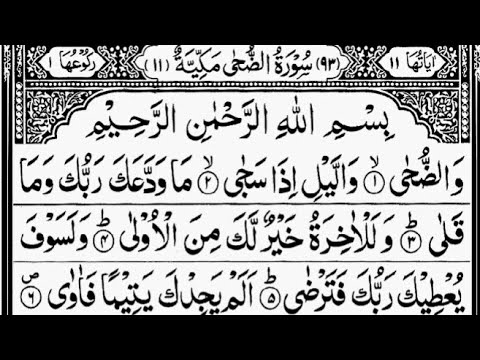 اٰيَاتُهَا ۱۱ (۹۳) سُوْرَةُ الضُّحٰى مَكِّيَّةٌ (۱۱) رُكُوْعُهَا ۱
بِسْمِ اللهِ الرَّحْمٰنِ الرَّحِيْمِ
وَالضُّحٰى ۙ﴿۱﴾ وَالَّيْلِ اِذَا سَجٰى ۙ﴿۲﴾ مَا وَدَّعَكَ رَبُّكَ وَمَا
قَلٰى ؕ﴿۳﴾ وَلَلْاٰخِرَةُ خَيْرٌ لَّكَ مِنَ الْاُوْلٰى ؕ﴿۴﴾ وَلَسَوْفَ
يُعْطِيْكَ رَبُّكَ فَتَرْضٰى ؕ﴿۵﴾ اَلَمْ يَجِدْكَ يَتِيْمًا فَاٰوٰى ۪﴿۶﴾